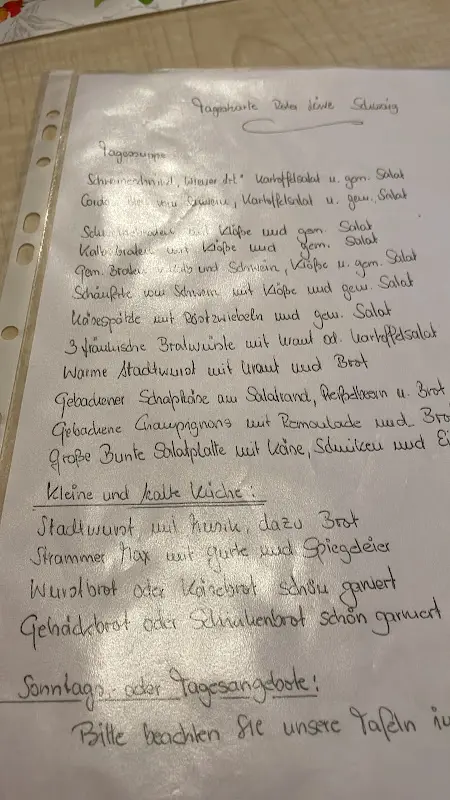 Tageskarte Roter Löwe
Tagessuppe
Schweineschnitzel, Wiener Art Kartoffelsalat u. gem. Salat
Cordon bleu vom Schwein, Kartoffelsalat u. gem. Salat
Schweinebraten mit Klöße und gem. Salat
Kalbsbraten mit Klöße und gem. Salat
Gem. Braten v. Kalb und Schwein, Klöße u. gem. Salat
Schäuferle vom Schwein mit Klöße und gem. Salat
Käsespätzle mit Röstzwiebeln und gem. Salat
3 fränkische Bratwürste mit Kraut od. Kartoffelsalat
Warme Stadtwurst mit Kraut und Brot
Gebackener Schafskäse am Salatrand, Preißelbeern u. Brot
Gebackene Champignons mit Remoulade und
Große Bunte Salatplatte mit Käse, Schinken und
Kleine und kalte Küche:
Stadtwurst mit Musik, dazu Brot
Strammer Max mit Gurke und Spiegeleier
Wurstbrot oder Käsebrot schön garniert
Gehäckbrot oder Schinkenbrot schön garniert
Sonntags- oder Tagesangebote:
Bitte beachten Sie unsere Tafeln